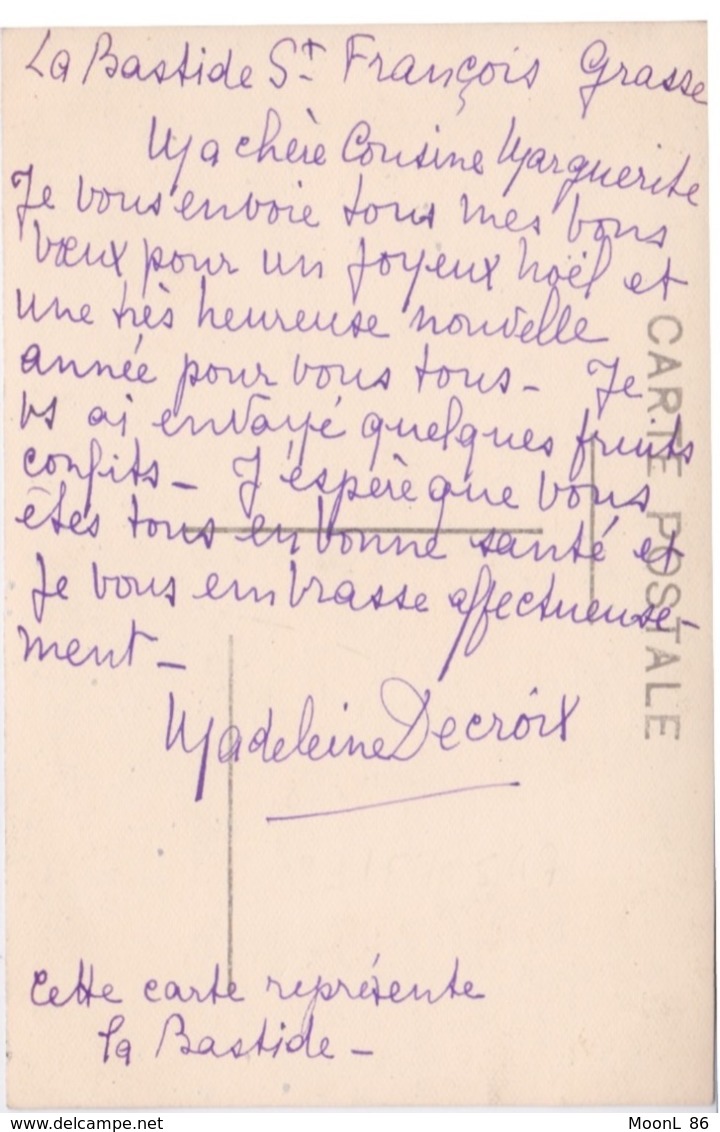 La Bastide St François Grasse
Ma chère Cousine Marguerite
Je vous envoie tous mes bons
vœux pour un Joyeux Noël et
une très heureuse nouvelle
année pour vous tous - Je
vs ai envoyé quelques fruits
confits - J'espère que vous
êtes tous en bonne santé et
Je vous embrasse affectueuse-
ment -
Madeleine Decroix
Cette carte représente
la Bastide -
CARTE POSTALE
MoonL 86